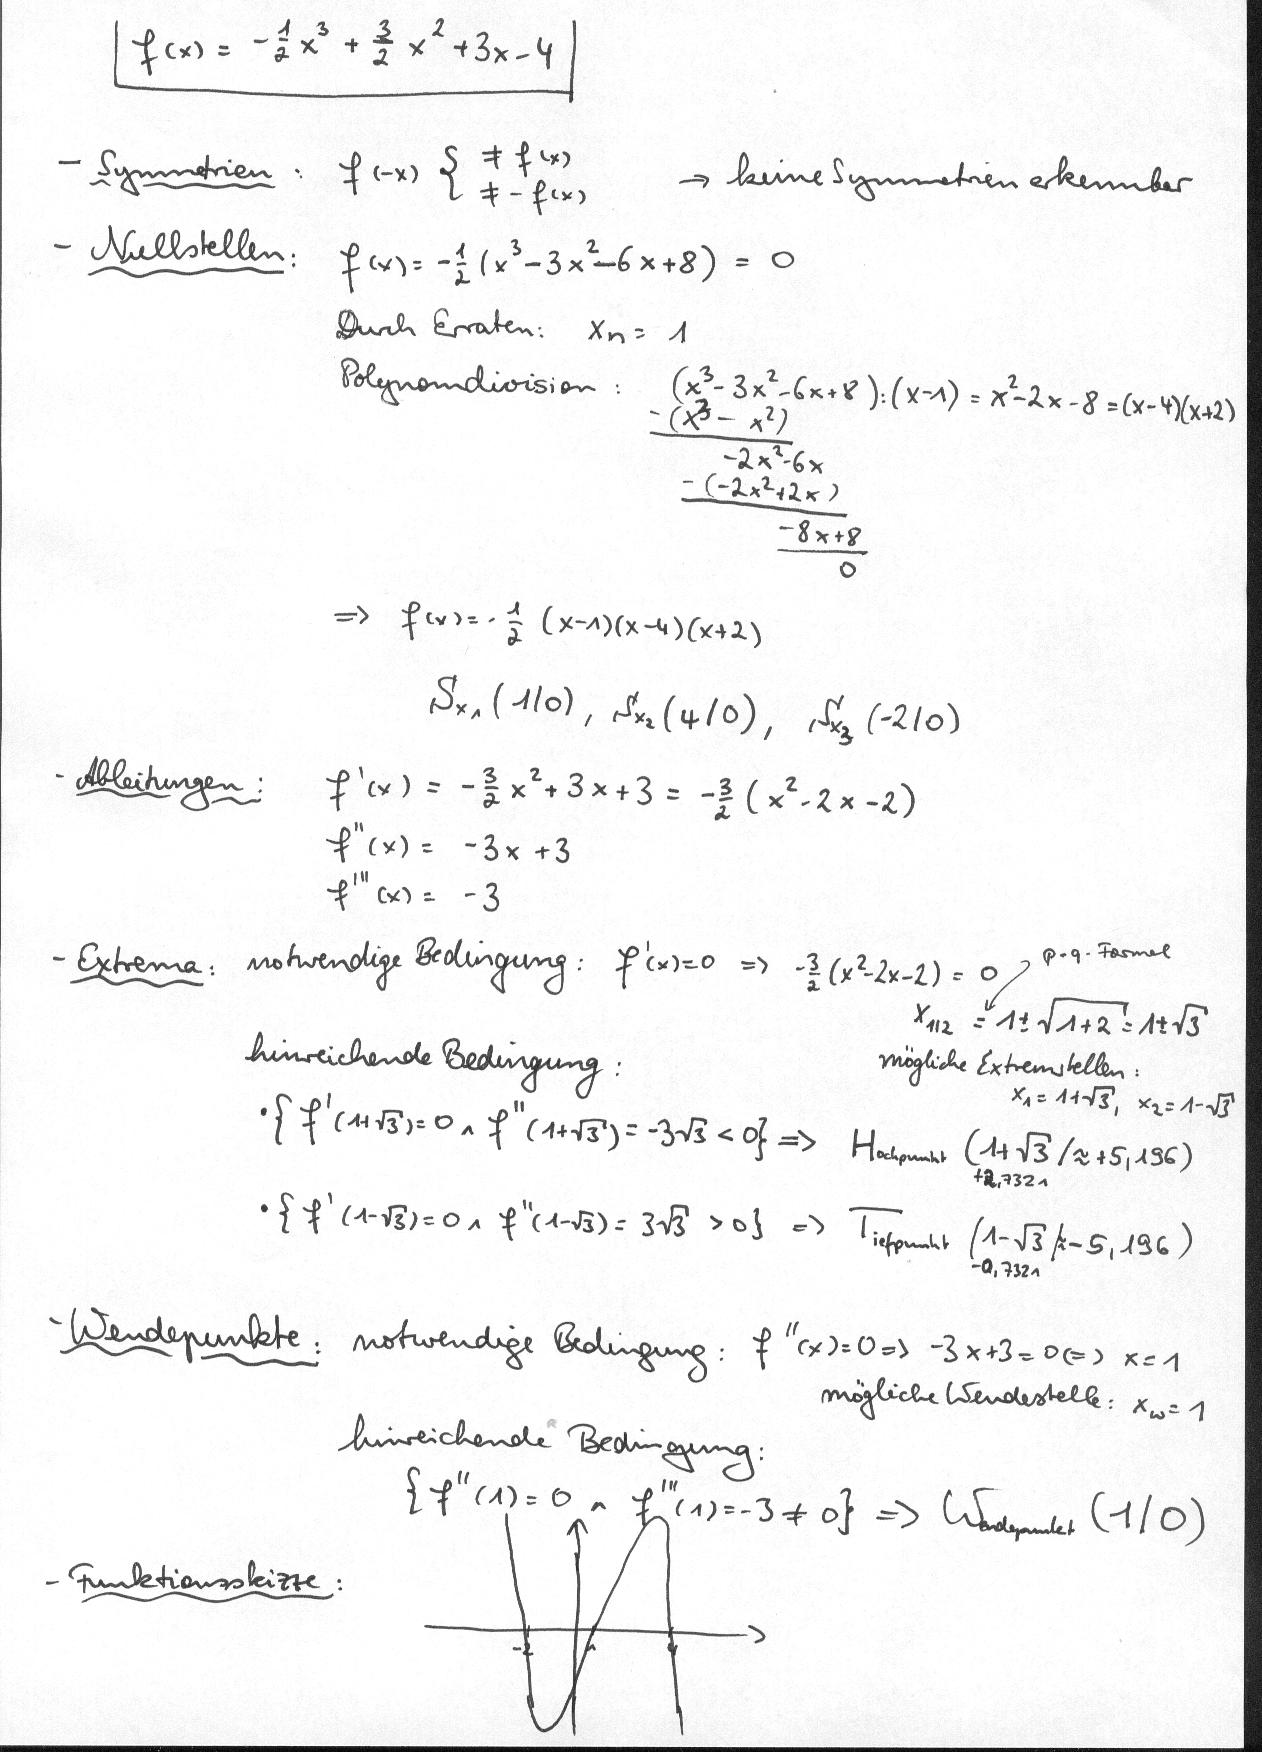 f(x) = -1/2 x³ + 3/2 x² + 3x - 4
- Symmetrien: f(-x) { ≠ f(x)
≠ -f(x) → keine Symmetrien erkennbar
- Nullstellen: f(x) = -1/2 (x³ - 3x² - 6x + 8) = 0
Durch Erraten: xₙ = 1
Polynomdivision: (x³ - 3x² - 6x + 8) : (x-1) = x² - 2x - 8 = (x-4)(x+2)
-(x³ - x²)
-2x² - 6x
-(-2x² + 2x)
-8x + 8
0
=> f(x) = -1/2 (x-1)(x-4)(x+2)
Sx₁ (1/0), Sx₂ (4/0), Sx₃ (-2/0)
- Ableitungen: f'(x) = -3/2 x² + 3x + 3 = -3/2 (x² - 2x - 2)
f''(x) = -3x + 3
f'''(x) = -3
- Extrema: notwendige Bedingung: f'(x)=0 => -3/2 (x² - 2x - 2) = 0 p-q-Formel
x₁/₂ = 1 ± √(1+2) = 1 ± √3
hinreichende Bedingung: mögliche Extremstellen:
x₁ = 1+√3, x₂ = 1-√3
• { f'(1+√3) = 0 ∧ f''(1+√3) = -3√3 < 0 } => Hochpunkt (1+√3 / ≈ +5,196)
+2,7321
• { f'(1-√3) = 0 ∧ f''(1-√3) = 3√3 > 0 } => Tiefpunkt (1-√3 / ≈ -5,196)
-0,7321
- Wendepunkte: notwendige Bedingung: f''(x)=0 => -3x+3=0 <=> x=1
mögliche Wendestelle: x_w = 1
hinreichende Bedingung:
{ f''(1) = 0 ∧ f'''(1) = -3 ≠ 0 } => Wendepunkt (1/0)
- Funktionsskizze:
-2 1 4